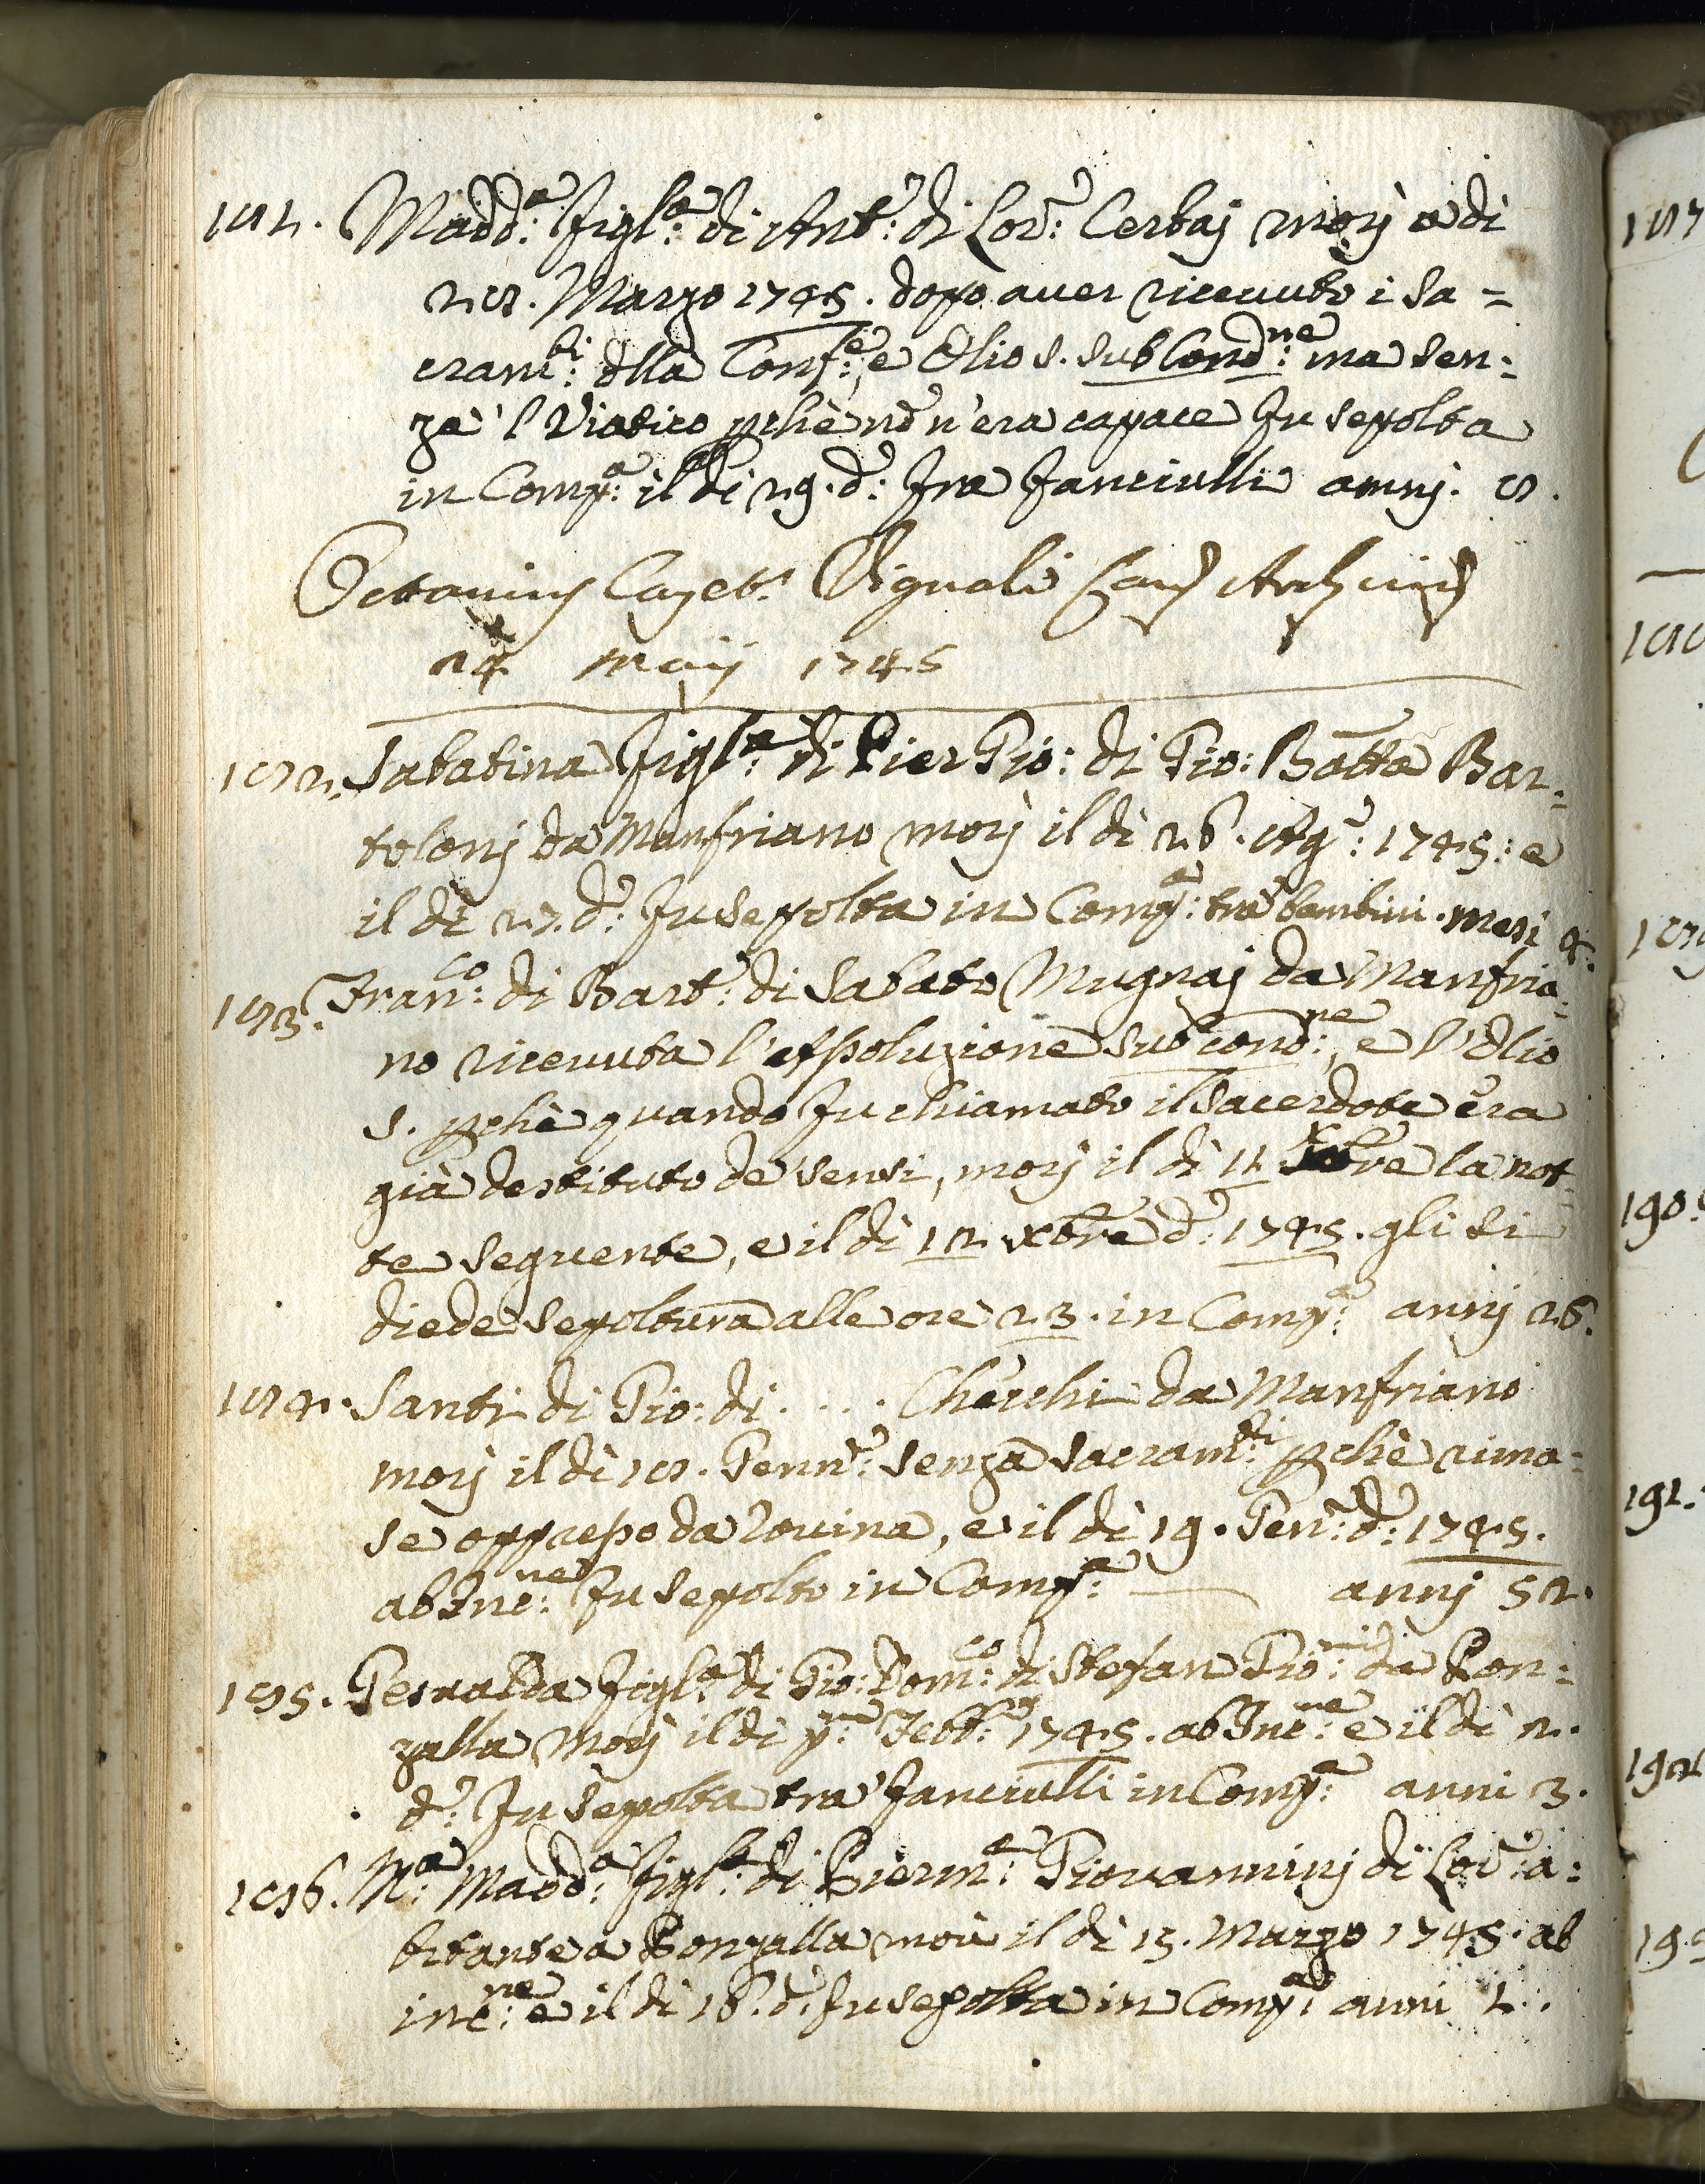 181. Madd.ª figl.ª di Ant.º di Lor.º Certaj morj a di
28. Marzo 1745. dopo aver ricevuto i Sa=
cram.ti dlla Conf.e, e Olio S. sub Cond.ne ma sen=
za 'l Viatico pchè nõ n'era capace fu sepolta
in Comp.ª il di 29. d.º fra fanciulli annj. 8.
Octavius Cajet.s Vignali
24 Maij 1745
182. Sabatina figl.ª di Pier Gio: di Gio: Batta Bar=
tolonj da Manfriano morj il di 26. Ag.º: 1745: e
il di 27. d.º: fu sepolta in Comp.ª: tra bambini. mesi 4.
183. Fran.co: di Bart.º: di Sabato Mugnaj da Manfria=
no ricevuta l'assoluzione sub cond.ne, e l'Olio
S. pchè quando fu chiamato il Sacerdote era
già destituto de sensi, morj il di 11 Xbre la not=
te seguente, e il di 12. Xbre d.º: 1745. gli si
diede sepoltura alle ore 23. in Comp.ª: annj 26.
184. Santi di Gio: di . . . . Cherchi da Manfriano
morj il di 18. Genn.º: senza sacram.ti pchè rima=
se oppresso da rovina, e il di 19. Gen.º: d.º: 1745.
ab Inc.ne fu sepolto in Comp.ª: — annj 52.
185. Gesualda figl.ª di Gio: Dom.co: di Stefan Gio: da Ron=
zalla morj il di p.mo Febb.º: 1745. ab Inc.ne: e il di 2.
d.º: fu sepolta tra fanciulli in Comp.ª: anni 3.
186. M.ª: Madd.ª: figl.ª: di Pierm.ª: Giovanninj di Lor.º: a=
bitante a Ronzalla morì il di 15. Marzo 1745. ab
inc.ne: e il di 16. d.º: fu sepolta in Comp.ª: anni 1.
187
188
190.
191.
192